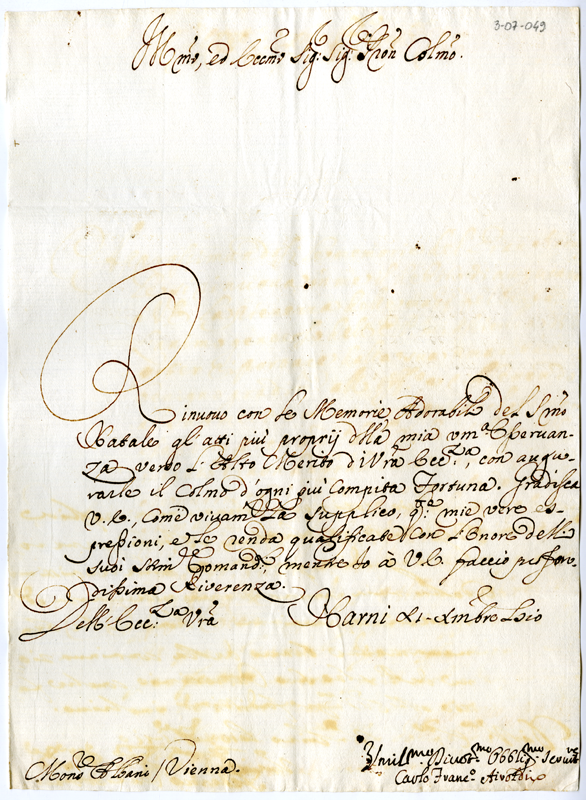 3-07-049
Ill.mo, ed Ecc.mo Sig.r Sig.r P'ron Colmo.
Rinuovo con le Memorie Adorabili del S.mo
Natale gl'atti più proprij dlla mia um.ma Osservan-
za verso l'Alto Merito di Vrã Ecc.za, con augu-
rarle il Colmo d'ogni più Compita Fortuna. Gradisca
V.E., come vivam.te La supplico, q.te mie vere es-
pressioni, e le renda qualificate con l'Onore delli
suoi stim Comand.i mentre io à V.E. faccio profon-
dissima Riverenza.
Dell'Ecc.za Vrã Narni
Mons.r Albani / Vienna.
Umil.mo Divot.mo Obblig.mo Servit.re
Carlo Franc.o Airoldi